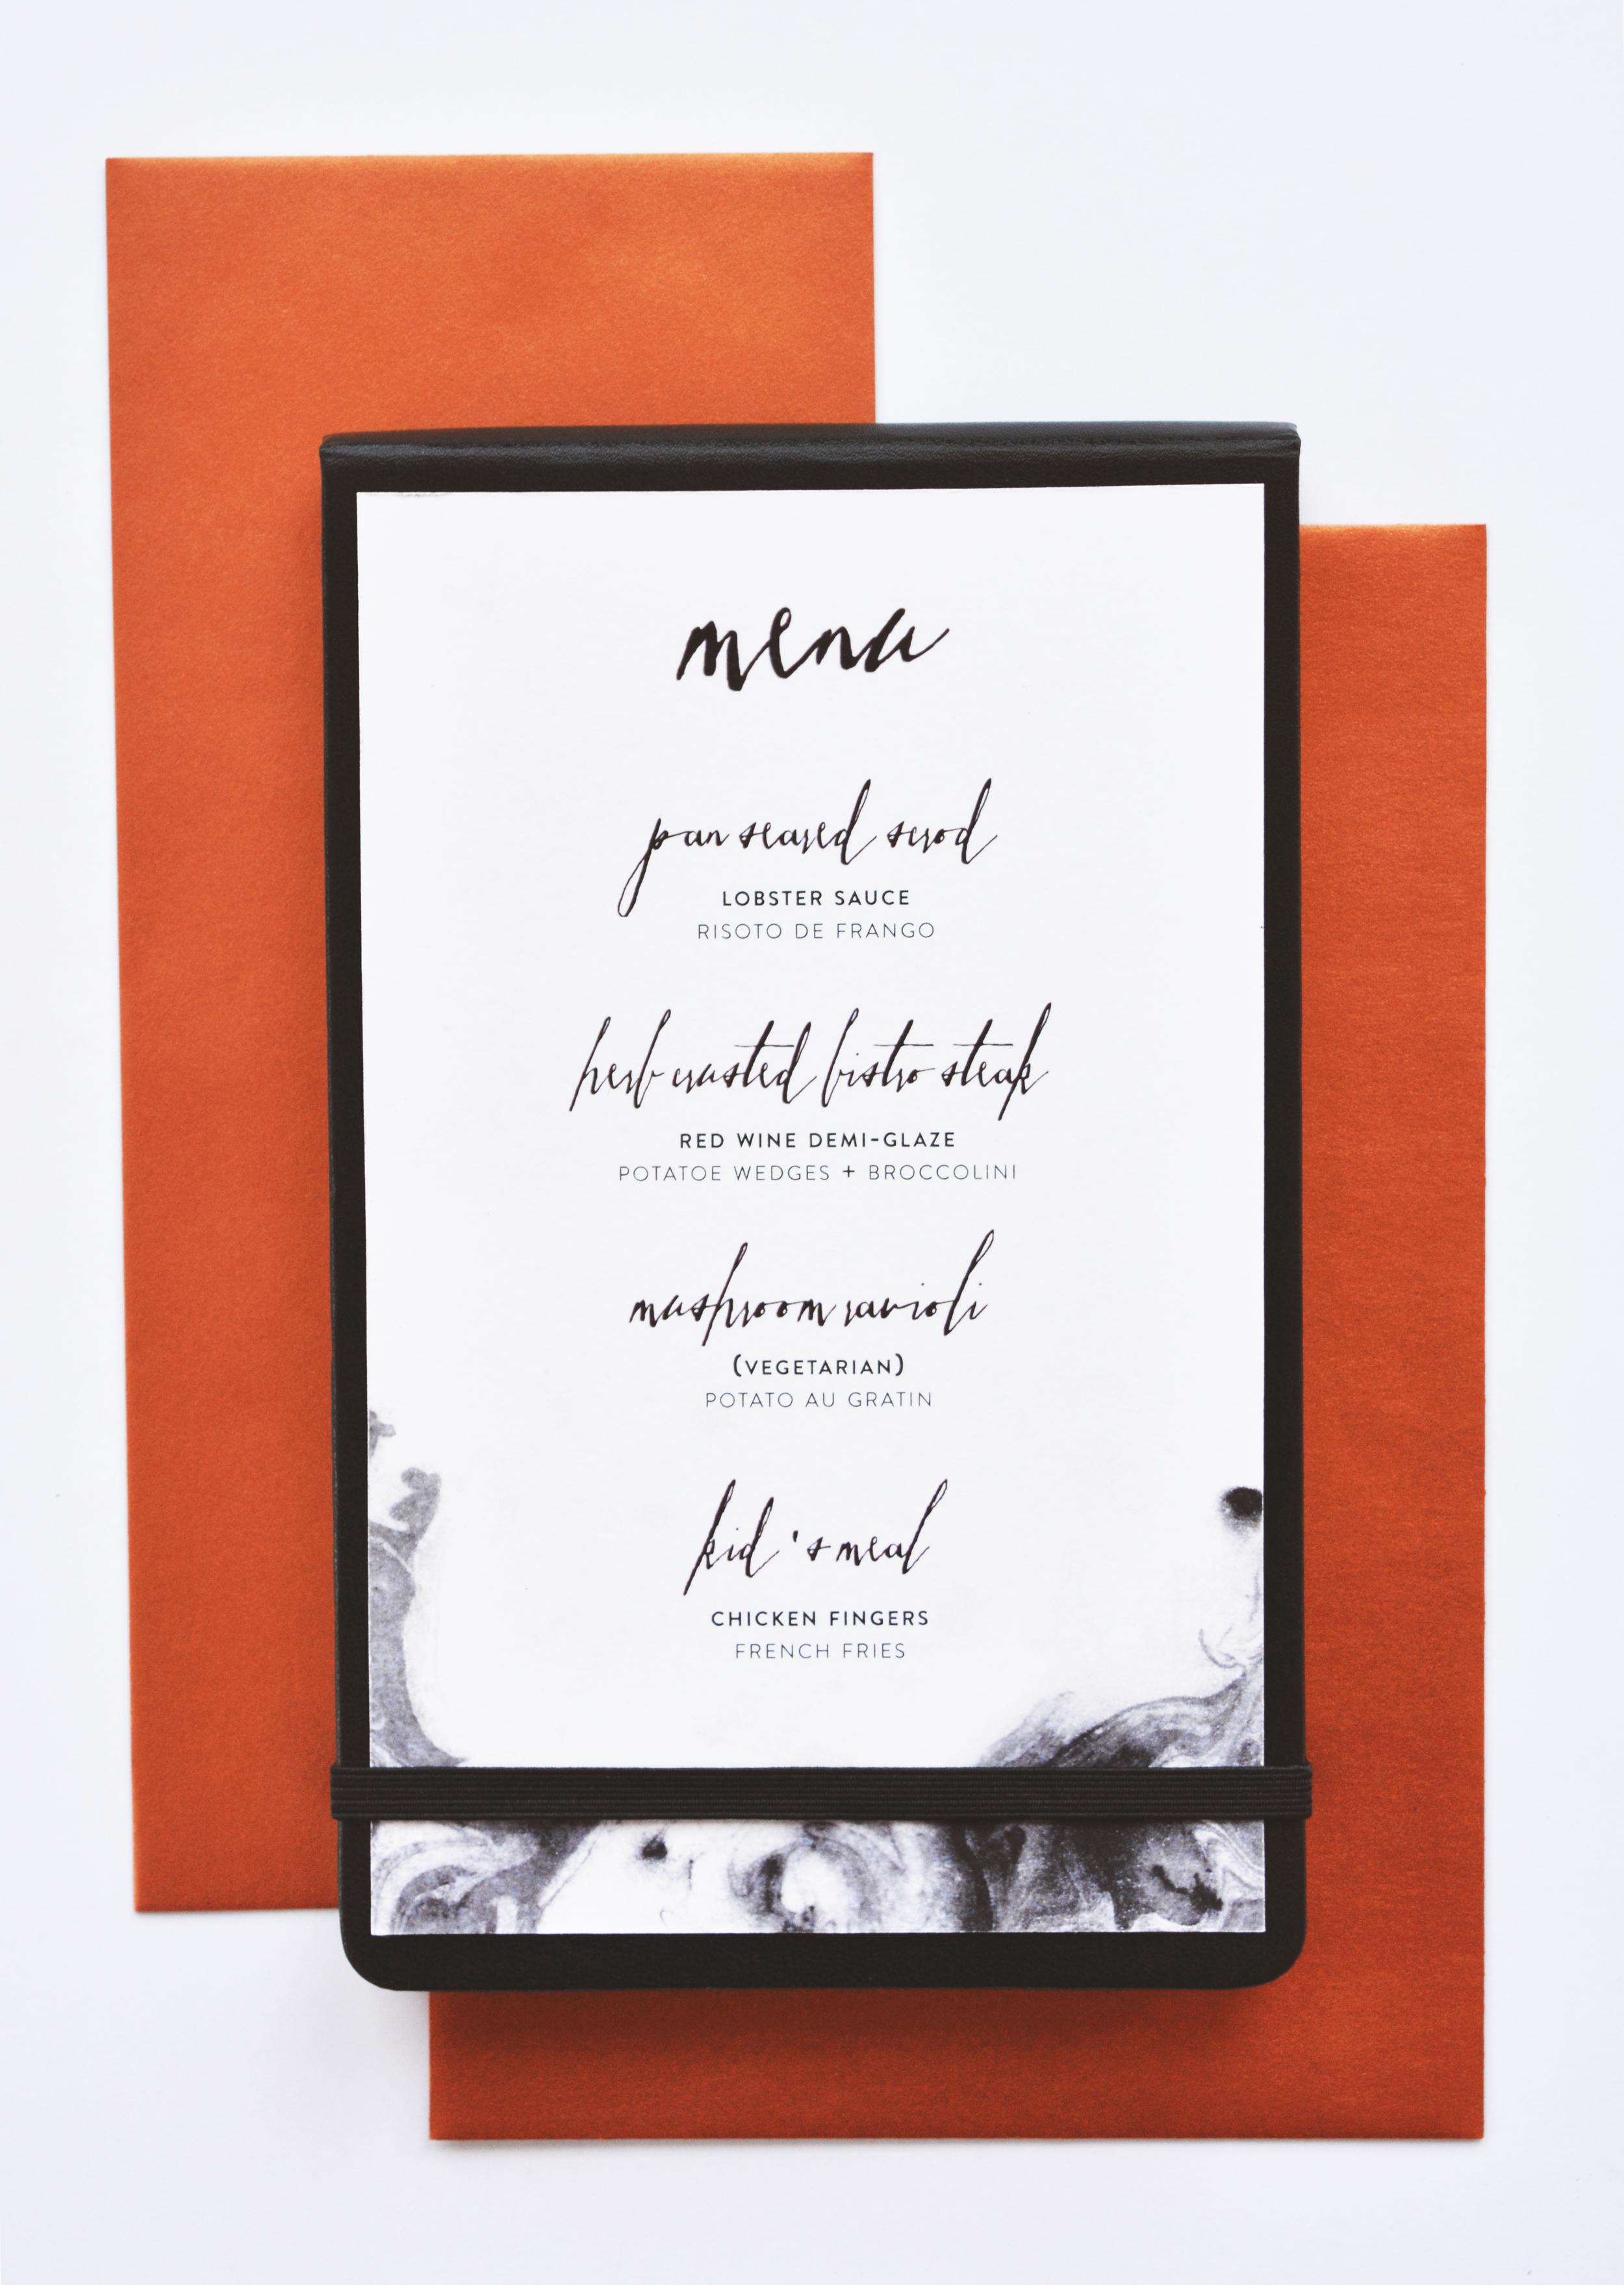 menu
pan seared scrod
LOBSTER SAUCE
RISOTO DE FRANGO
herb crusted bistro steak
RED WINE DEMI-GLAZE
POTATOE WEDGES + BROCCOLINI
mushroom ravioli
(VEGETARIAN)
POTATO AU GRATIN
kid's meal
CHICKEN FINGERS
FRENCH FRIES